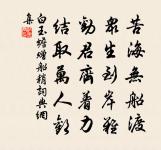 苦海無船渡
衆生到岸難
勸君齊着力
結取萬人緣
白玉蟾贈船稍詞典網
集